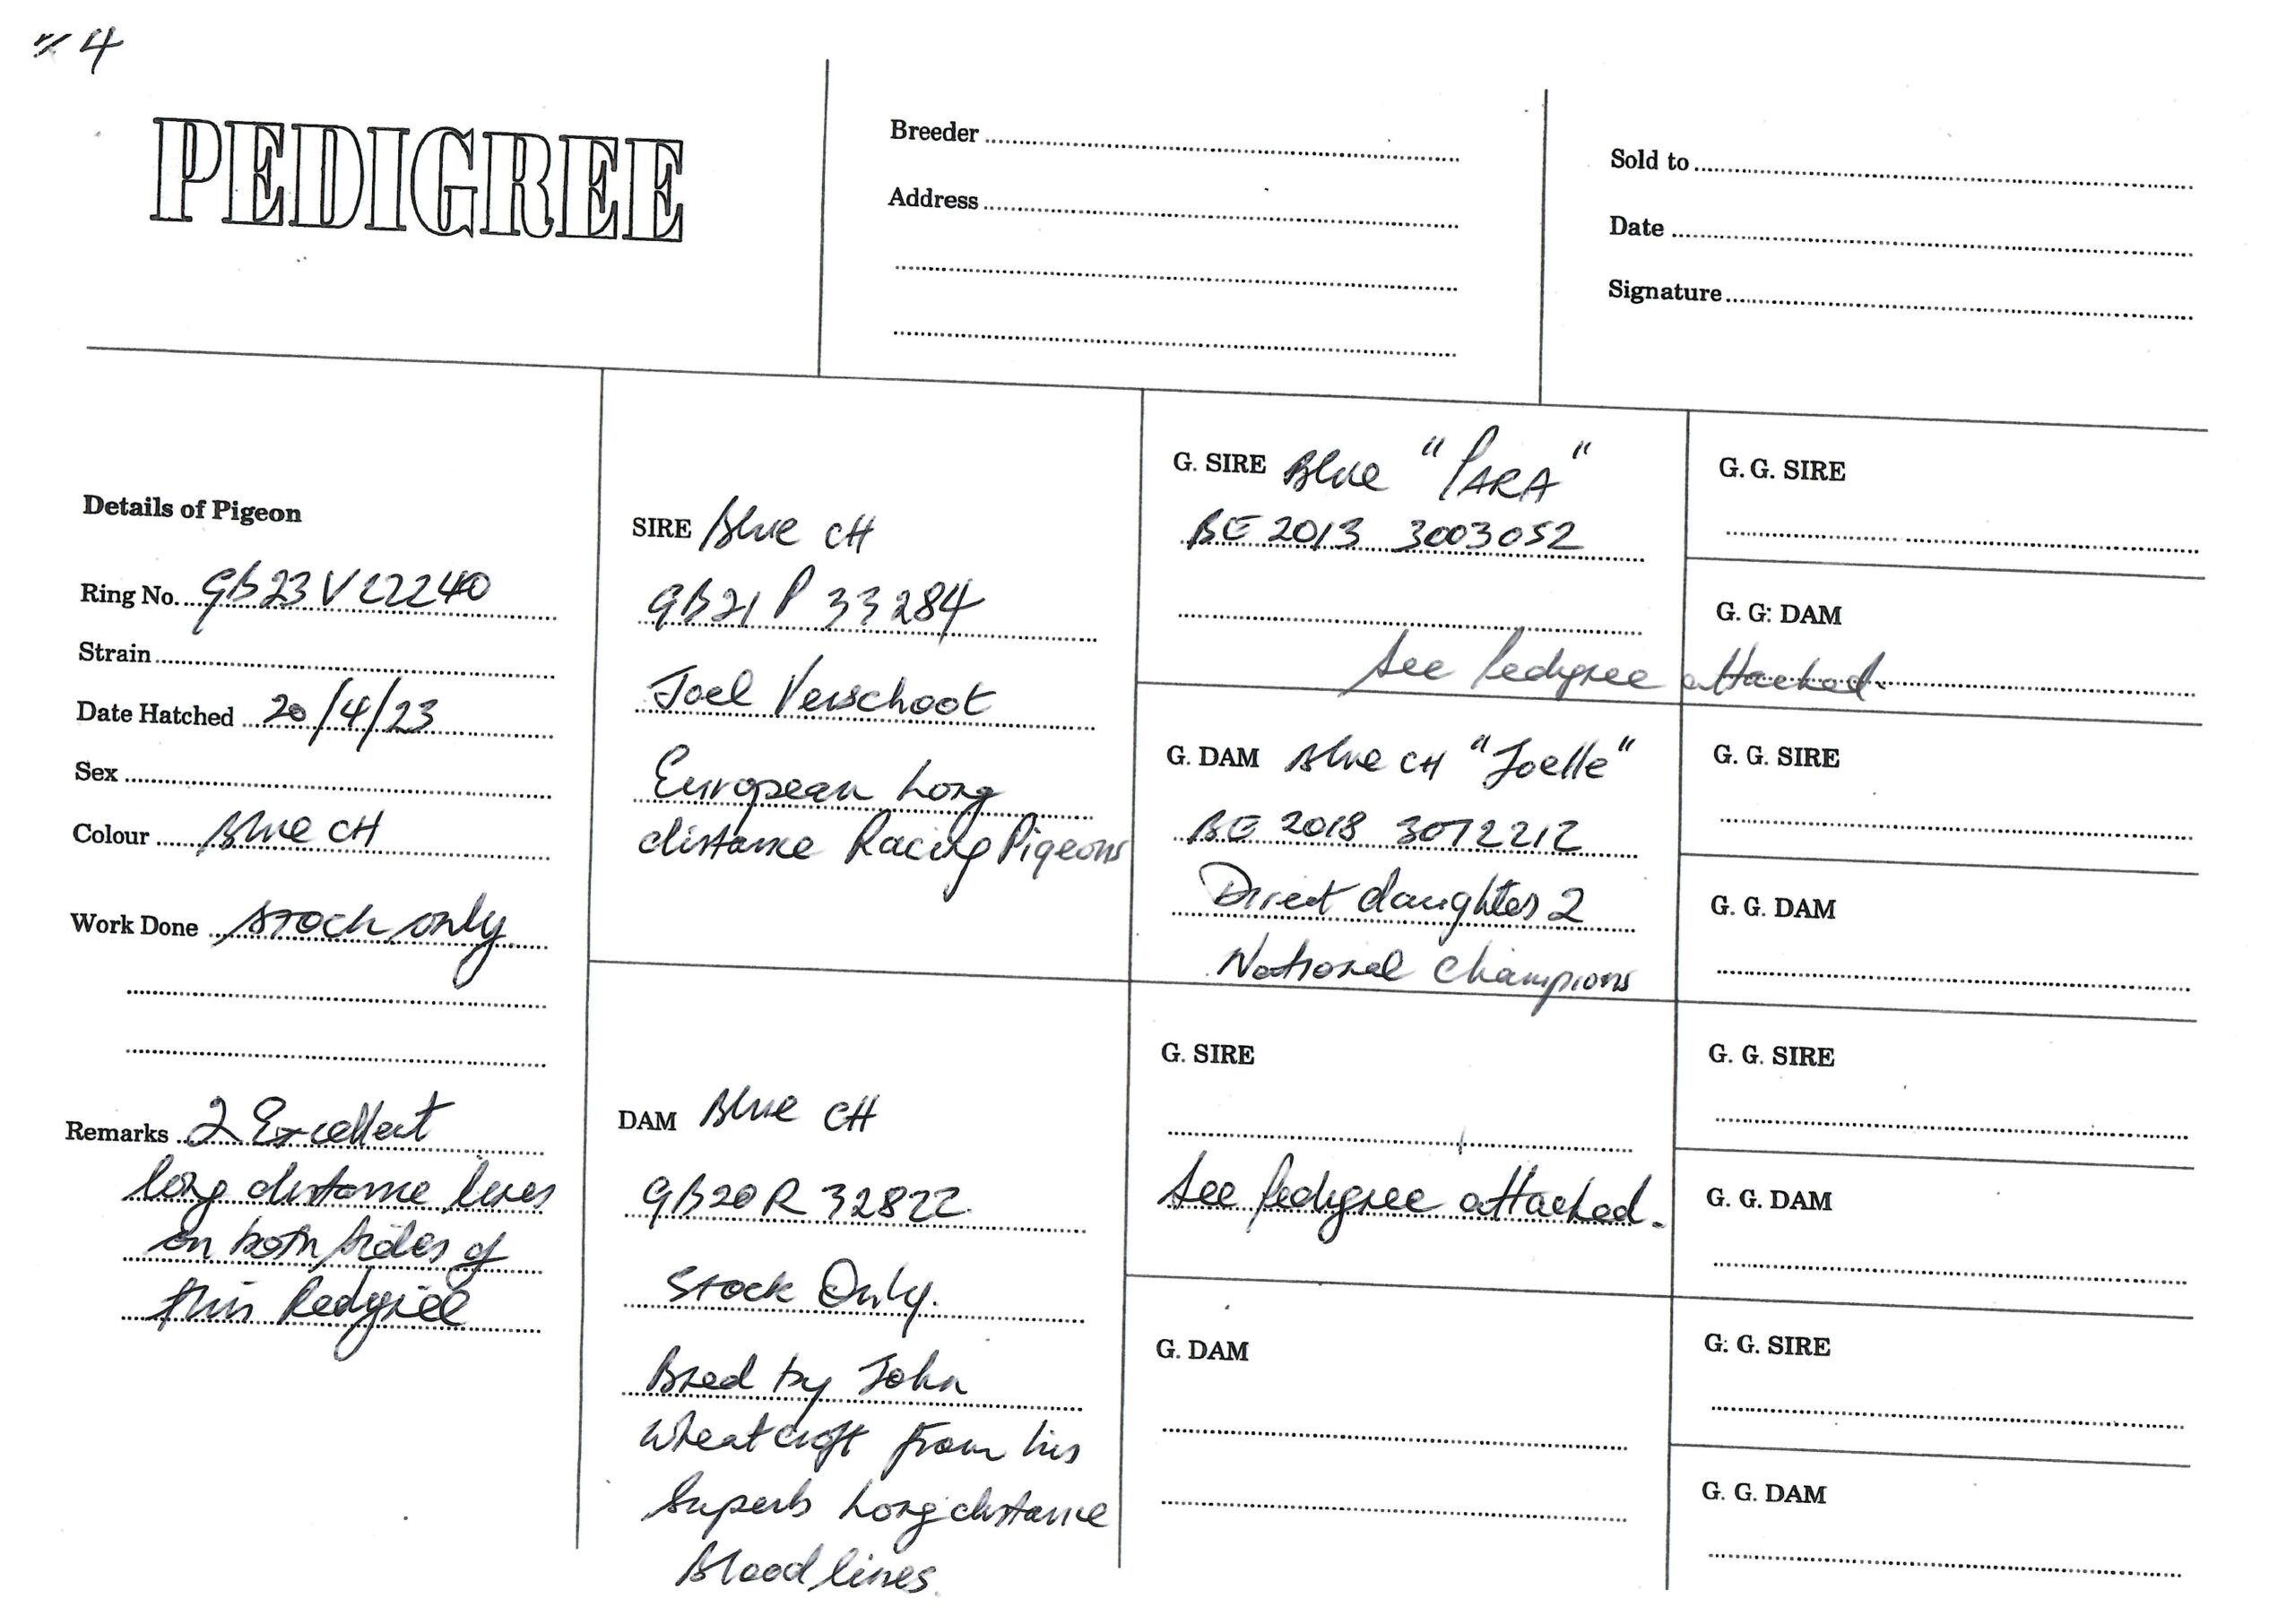 4
PEDIGREE
Breeder
Address
Sold to
Date
Signature
Details of Pigeon
Ring No. GB23 V 22240
Strain
Date Hatched 20/4/23
Sex
Colour Blue CH
Work Done Stock only
Remarks 2 Excellent
long distance lines
on both sides of
this Pedigree
SIRE Blue CH
GB21 P 33284
Joel Verschoot
European Long
distance Racing Pigeons
DAM Blue CH
GB20 R 32822
Stock Only.
Bred by John
Wheatcroft from his
Superb Long distance
Blood lines.
G. SIRE Blue "PARA"
BE 2013 3003052
See Pedigree attached.
G. DAM Blue CH "Joelle"
BE 2018 3072212
Direct daughter 2
National Champions
G. SIRE
See Pedigree attached.
G. DAM
G. G. SIRE
G. G. DAM
G. G. SIRE
G. G. DAM
G. G. SIRE
G. G. DAM
G. G. SIRE
G. G. DAM